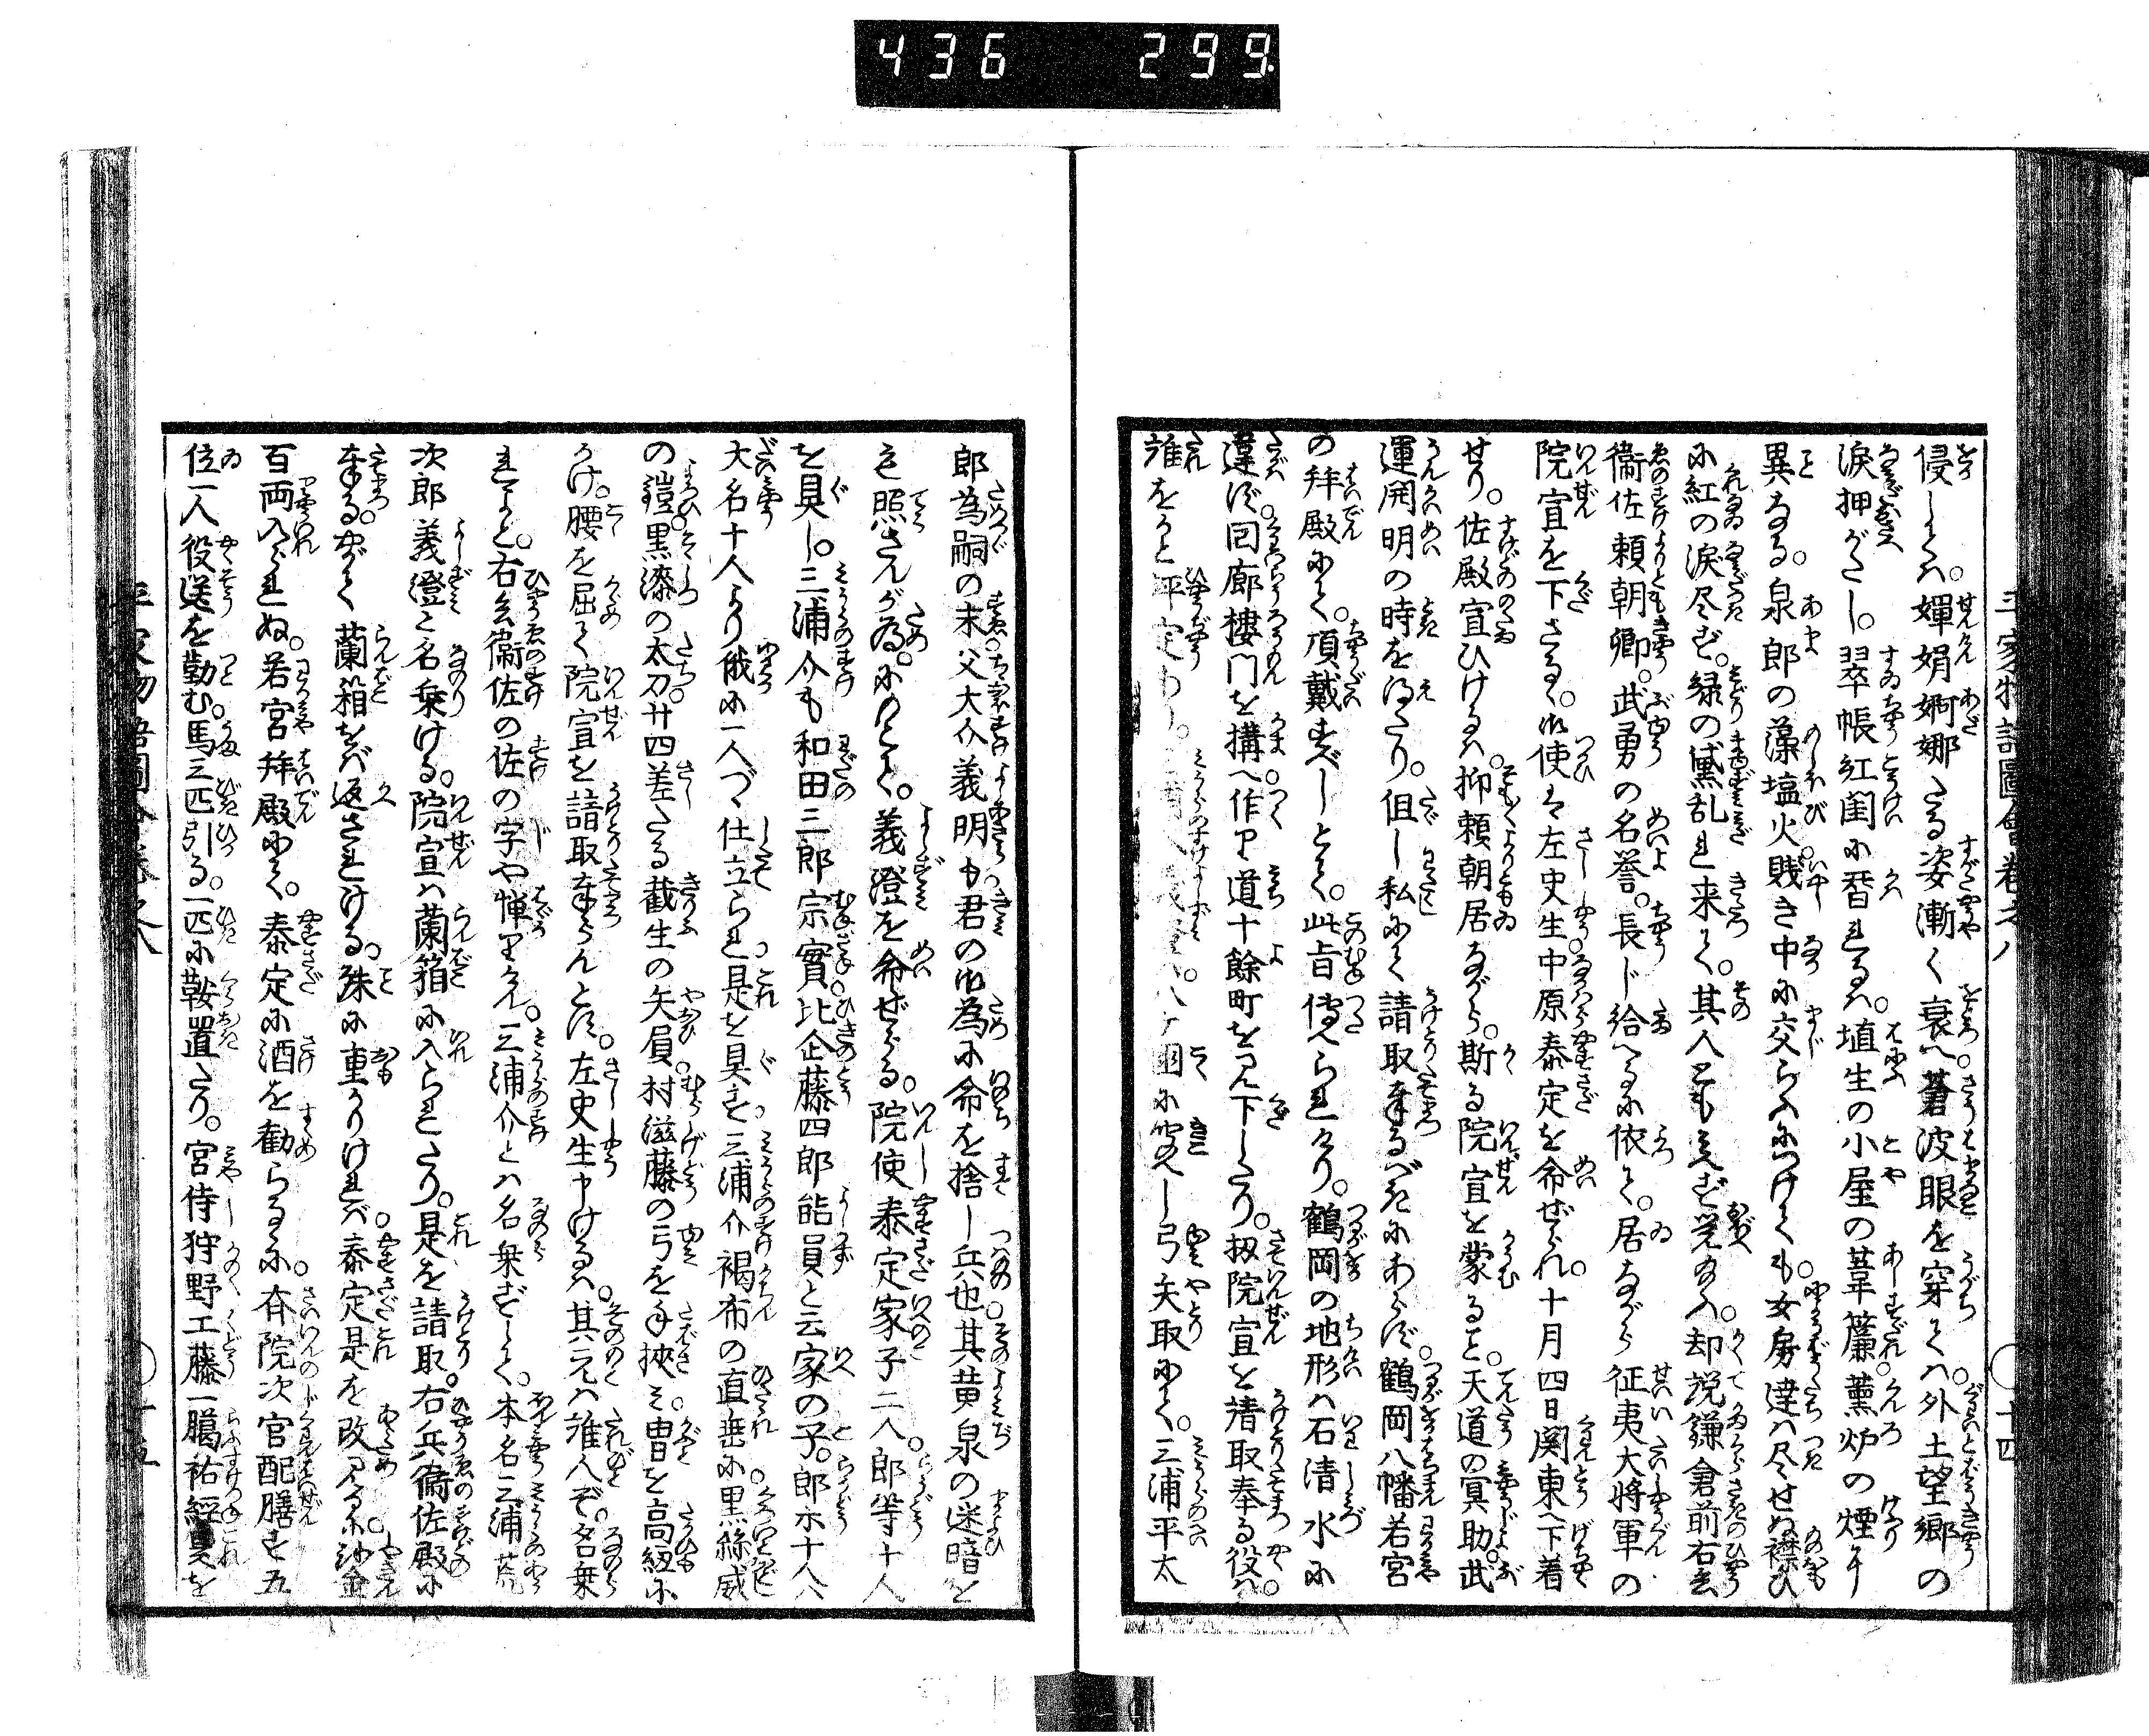 436 299
平家物語圖會巻之八
侵しては。嬋娟婀娜たる姿漸く衰へ。蒼波眼を穿ては。外土望郷の
涙押がたし。翠帳紅閨に替れるは。埴生の小屋の葦簾。薫炉の煙に
異なる。泉郎の藻塩火。賎き中に交らふにつけても。女房達は尽せぬ襟ひ
に紅の涙尽ず。緑の黛乱れ来て。其人ともみえず覚給ふ。却説鎌倉前右兵
衞佐頼朝卿。武勇の名誉。長じ給へるに依て。居ながら征夷大将軍の
院宣を下さるゝ。御使は左史生中原泰定を命ぜられ。十月四日関東へ下着
せり。佐殿宣ひけるは。抑頼朝居ながら。斯る院宣を蒙ると。天道の冥助。武
運開明の時を得たり。但し私にて請取奉るべきにあらず。鶴岡八幡若宮
の拜殿にて。頂戴すべしとて。此旨傳へられけり。鶴岡の地形は石清水に
違ず。回廊樓門を搆へ。作り道十餘町を見下したり。扨院宣を請取奉る役は。
誰をかと評定
国に聞えし弓矢取にて。三浦平太
郎為嗣の末。父大介義明も。君の御為に命を捨し兵也。其黄泉の迷暗を
も照さんが為。にのとて。義澄を命ぜらる。院使泰定家子二人。郎等十人
を具し。三浦介も和田三郎宗實。比企藤四郎能員と云家の子。郎等十人は
大名十人より俄に一人づゝ仕立られ。是を具す。三浦介褐布の直垂に。黒絲威
の鎧。黒漆の太刀。廿四差たる截生の矢屓。村滋藤の弓を手挾み。冑を高紐に
かけ。腰を屈て院宣を請取奉らんとす。左史生申けるは。其元は誰人ぞ。名乗
れよと。右兵衞佐の佐の字や憚りけん。三浦介とは名乗ずして。本名三浦荒
次郎義澄と名乗ける。院宣は蘭箱に入られたり。是を請取。右兵衞佐殿に
奉る。やがて蘭箱をば返されける。殊に重かりければ。泰定是を改見るに。沙金
百両入られぬ。若宮拜殿にて。泰定に酒を勧らるゝに。斉院次官配膳す。五
位一人役送を勤む。馬三匹引る。一匹に鞍置たり。宮侍狩野工藤一臈祐經是を